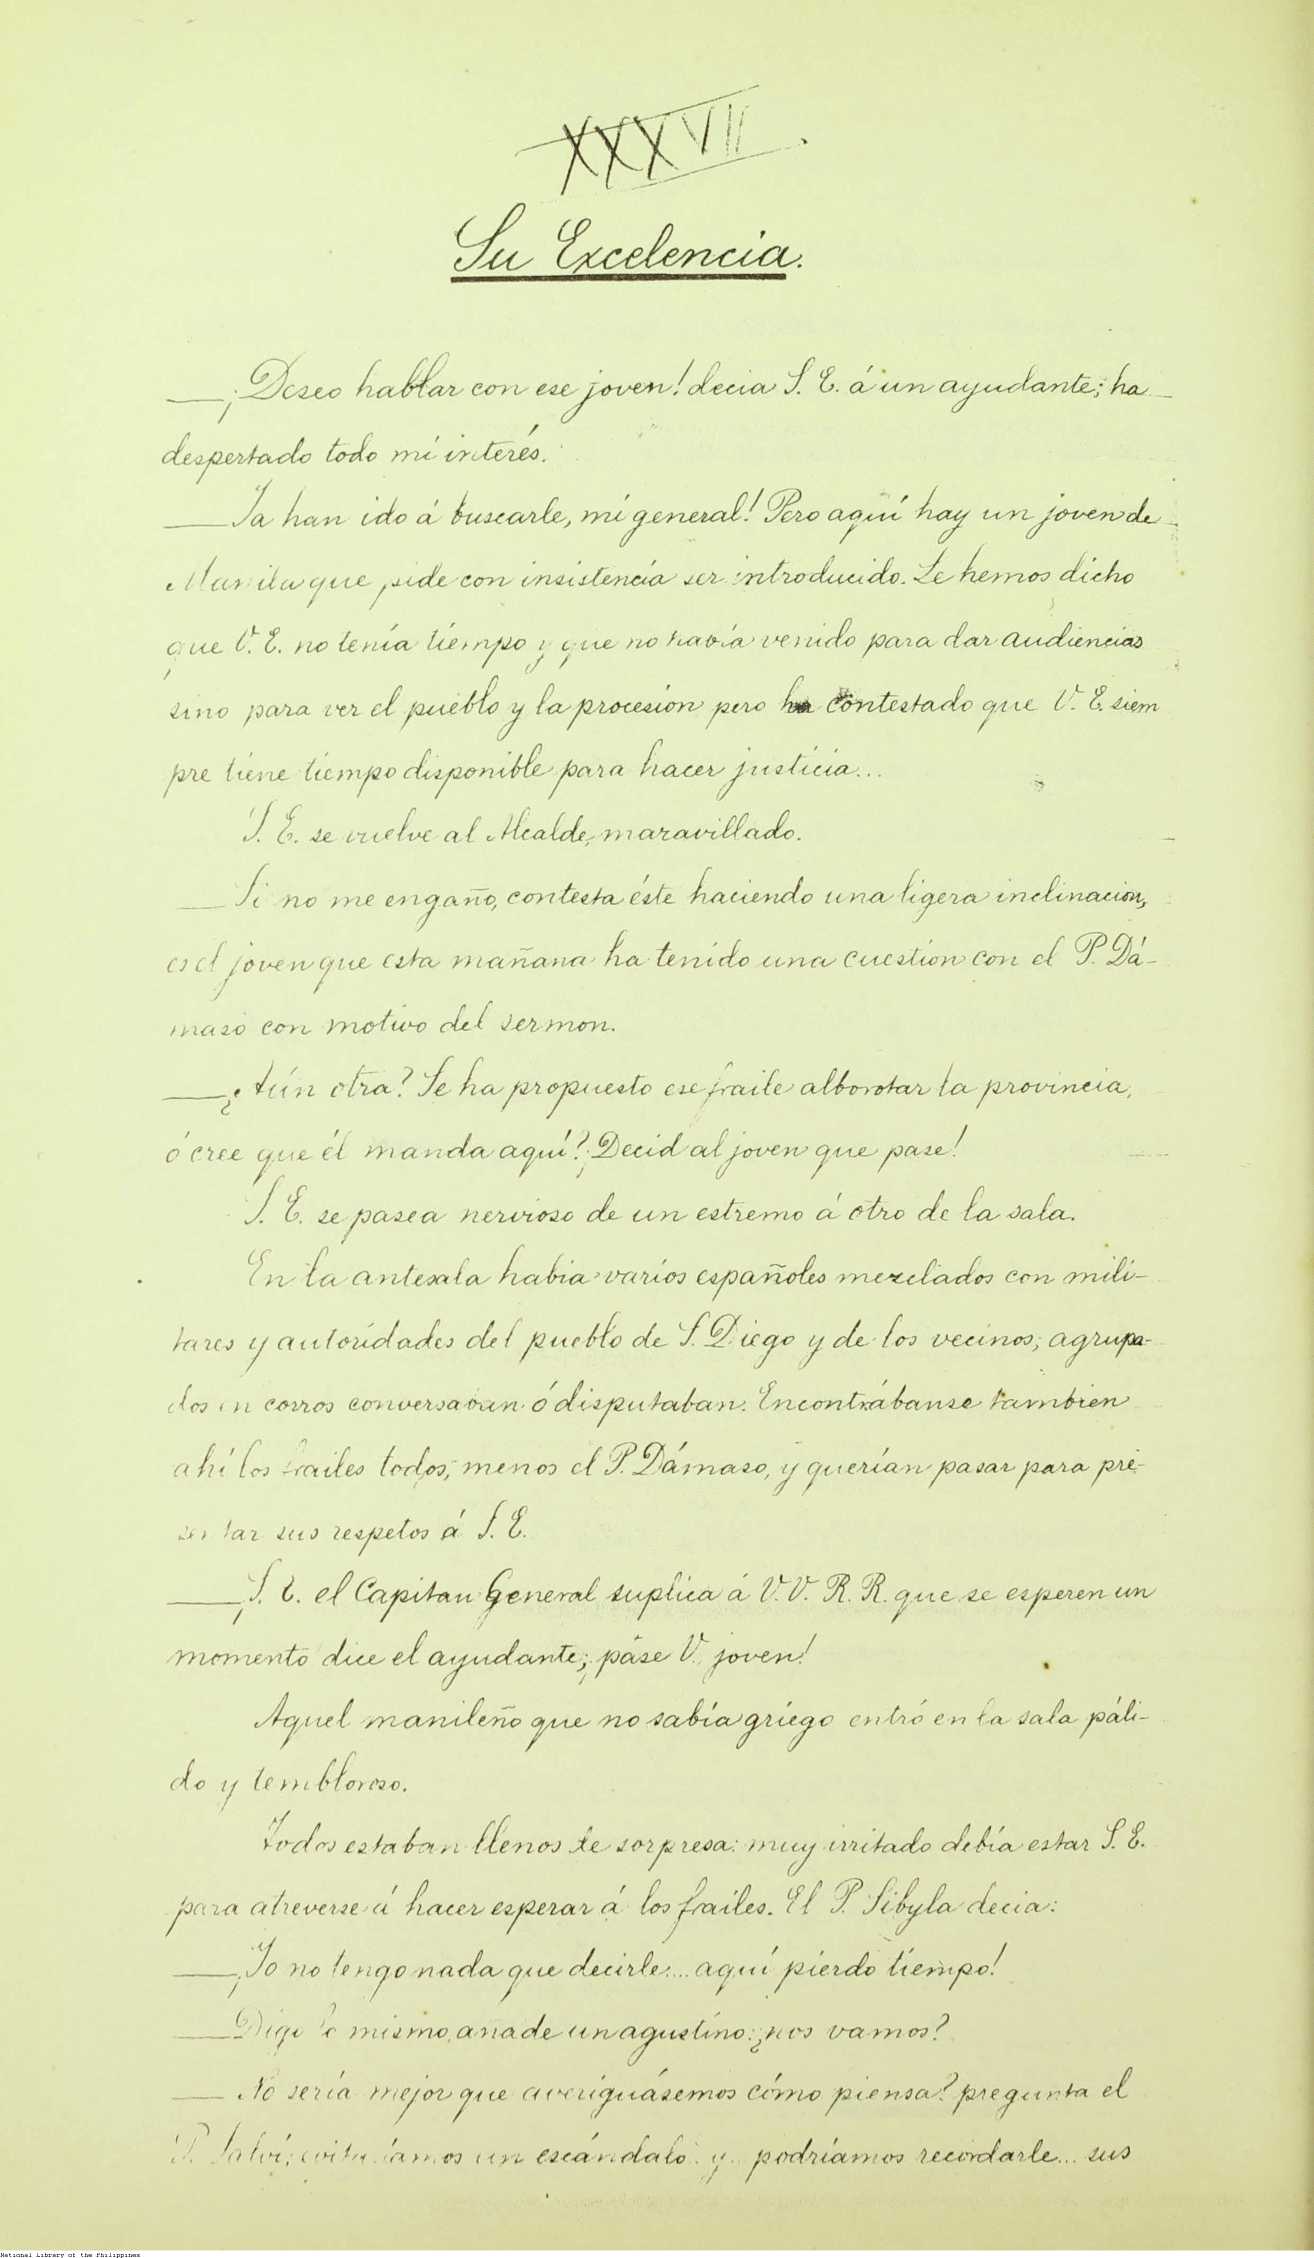 XXXVII.
Su Excelencia.
—¡Deseo hablar con ese joven! decia S. E. á un ayudante; ha
despertado todo mi interés.
—Ya han ido á buscarle, mi general! Pero aquí hay un joven de
Manila que pide con insistencia ser introducido. Le hemos dicho
que V. E. no tenía tiempo y que no había venido para dar audiencias
sino para ver el pueblo y la procesión pero ha contestado que V. E. siem
pre tiene tiempo disponible para hacer justicia...
S. E. se vuelve al Alcalde, maravillado.
—Si no me engaño, contesta éste haciendo una ligera inclinacion,
es el joven que esta mañana ha tenido una cuestion con el P. Dá-
maso con motivo del sermon.
—¿Aún otra? Se ha propuesto ese fraile alborotar la provincia,
ó cree que él manda aquí? ¡Decid al joven que pase!
S. E. se pasea nervioso de un estremo á otro de la sala.
En la antesala habia varios españoles mezclados con mili-
tares y autoridades del pueblo de S. Diego y de los vecinos; agrupa-
dos en corros conversaban ó disputaban. Encontrábanse tambien
ahí los frailes todos, menos el P. Dámaso, y querían pasar para pre-
sentar sus respetos á S. E.
—¡S. E. el Capitan General suplica á V. V. R. R. que se esperen un
momento dice el ayudante; ¡páse V. joven!
Aquel manileño que no sabía griego entró en la sala páli-
do y tembloroso.
Todos estaban llenos de sorpresa: muy irritado debía estar S. E.
para atreverse á hacer esperar á los frailes. El P. Sibyla decia:
—¡Yo no tengo nada que decirle... aquí pierdo tiempo!
—Digo lo mismo, añade un agustino: ¿nos vamos?
—No sería mejor que averiguásemos cómo piensa? pregunta el
P. Salví; evitaríamos un escándalo y podríamos recordarle... sus
National Library of the Philippines